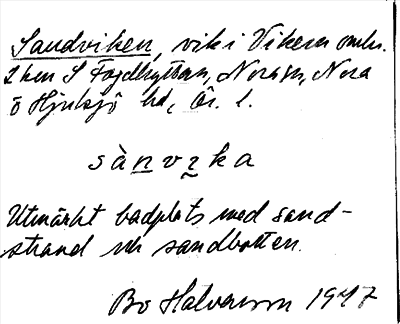 Sandviken, vik i Vikern omkr.
2 km S Fogdhyttan, Nora sn, Nora
o Hjulsjö bd, Ör. l.
sànvika
Utmärkt badplats med sand-
strand och sandbotten.
Bo Halvarson 1947